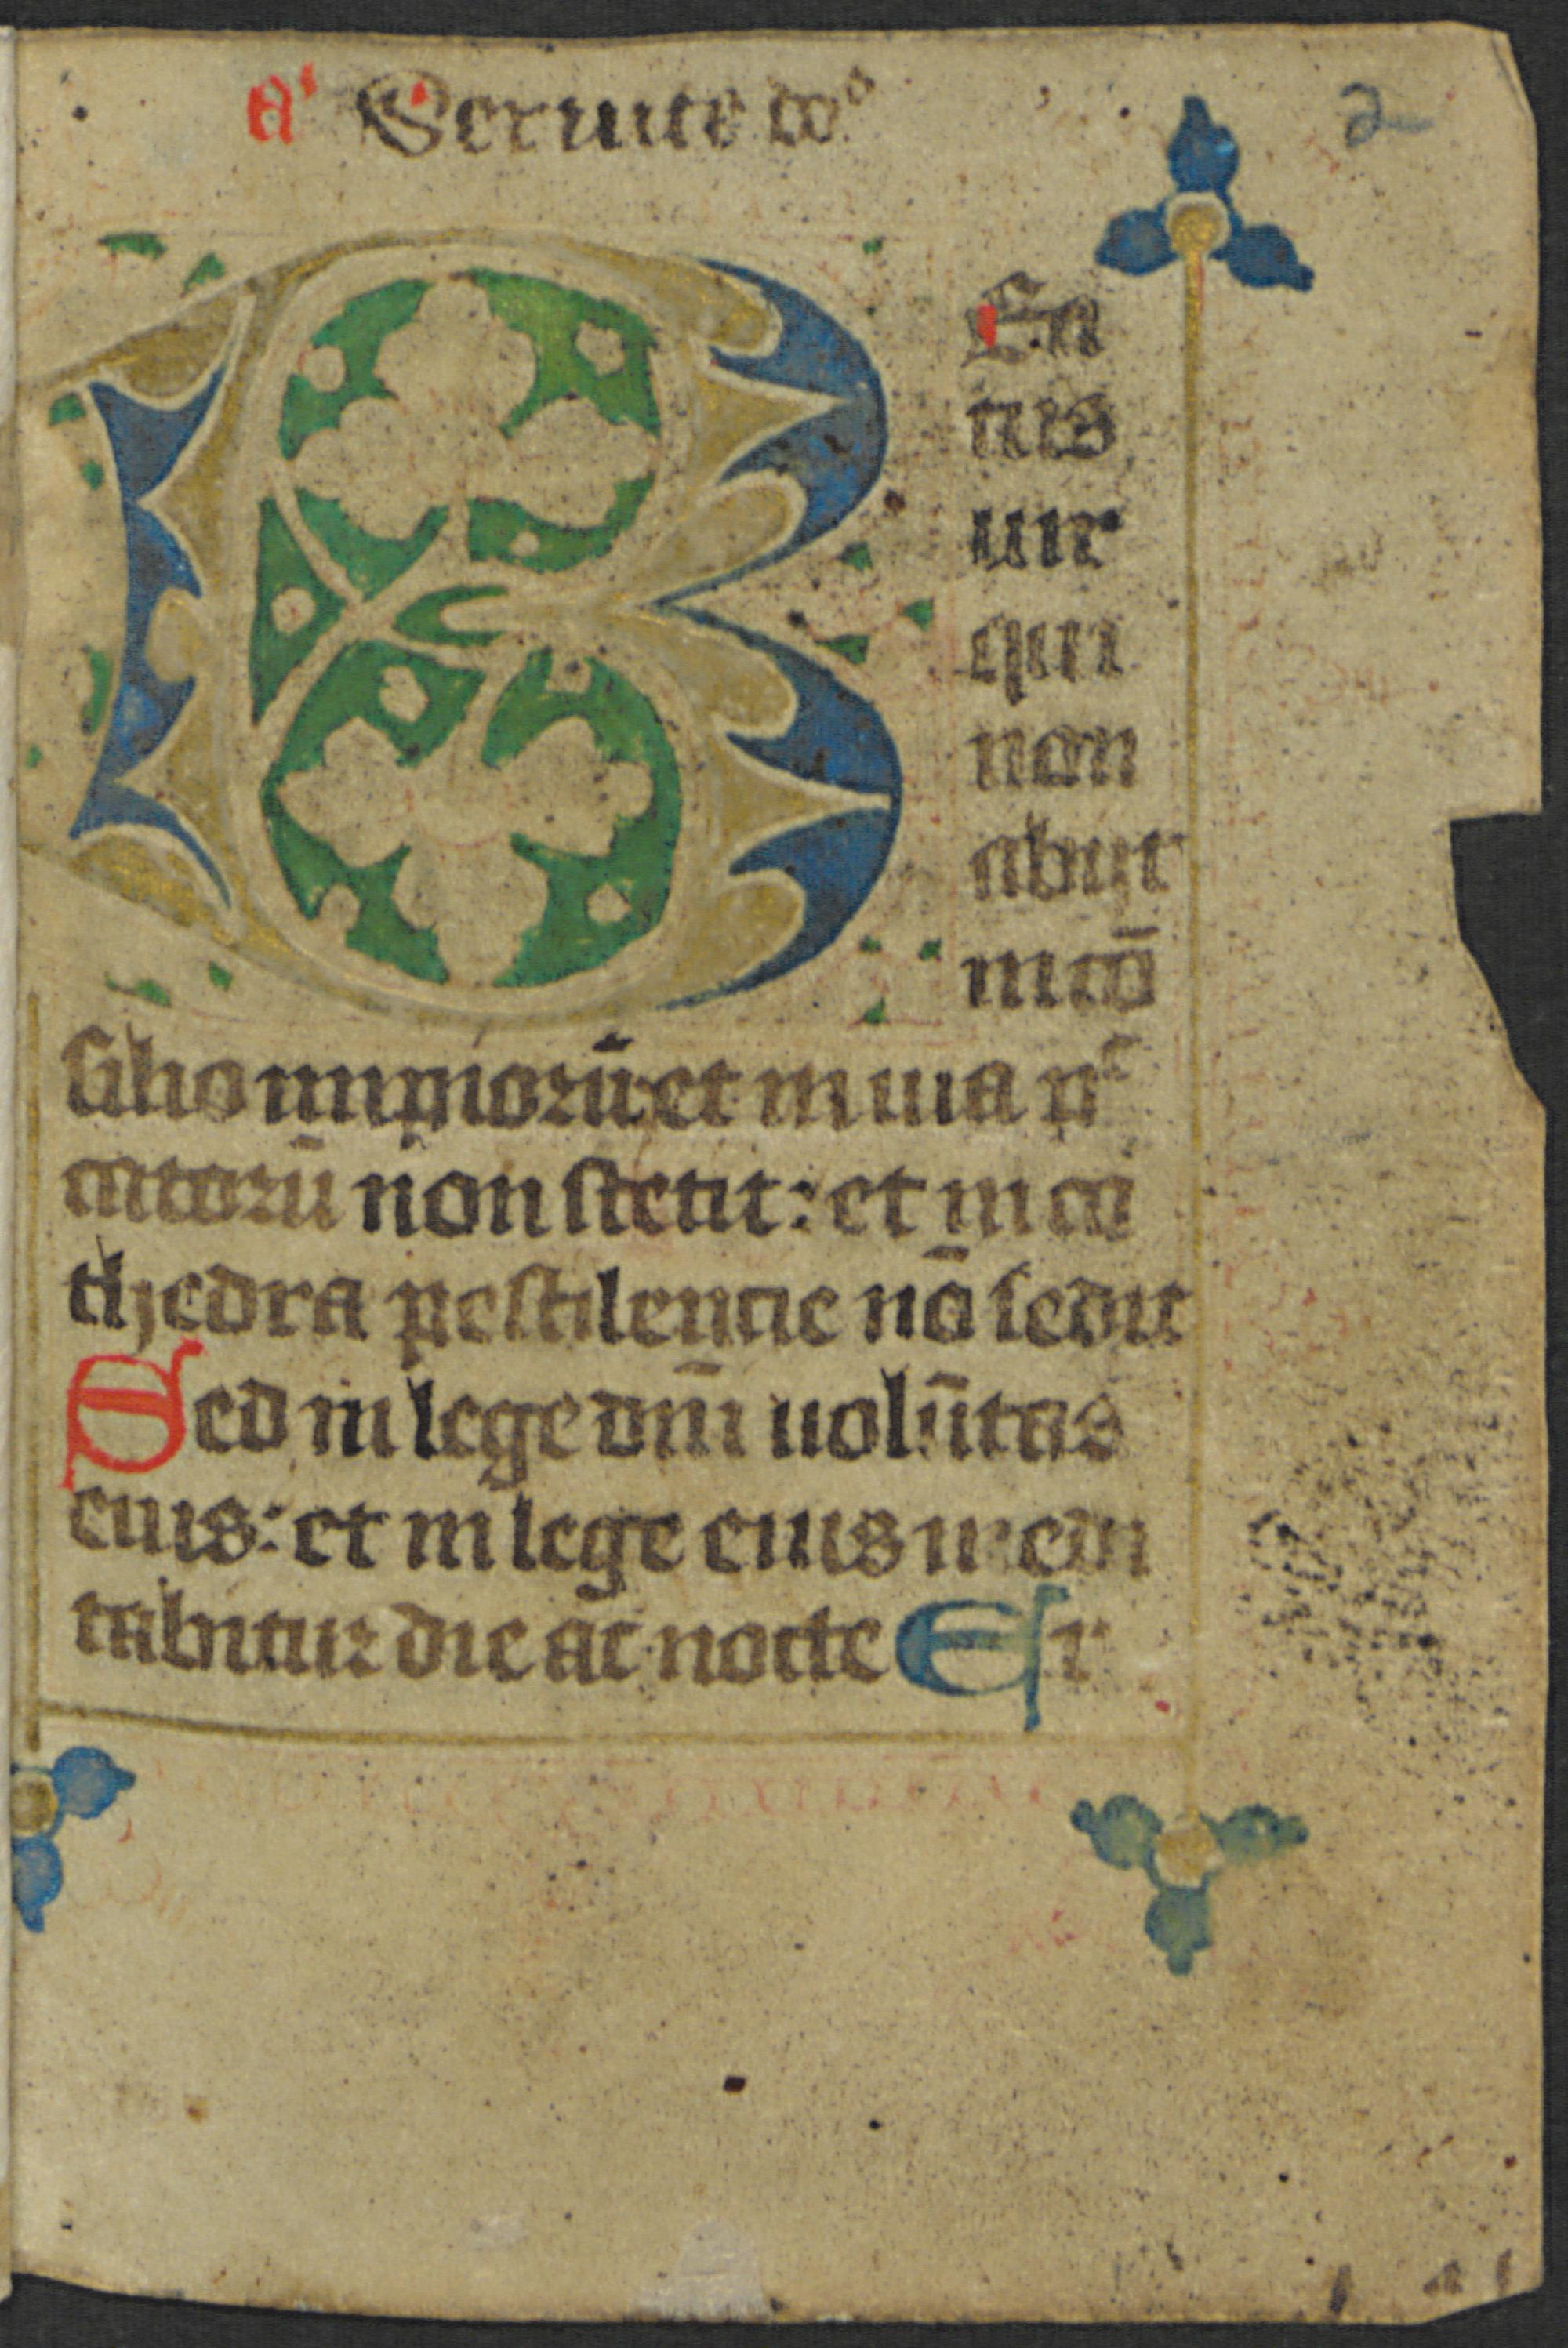 a' Seruite do
2
B Ea
tus
uir
qui
non
abijt
in cō
silio impiorū: et in uia pec
catorū non stetit: et in ca
thedra pestilentie nō sedit
Sed in lege dn̄i uolūtas
eius: et in lege eius medi
tabitur die ac nocte Et